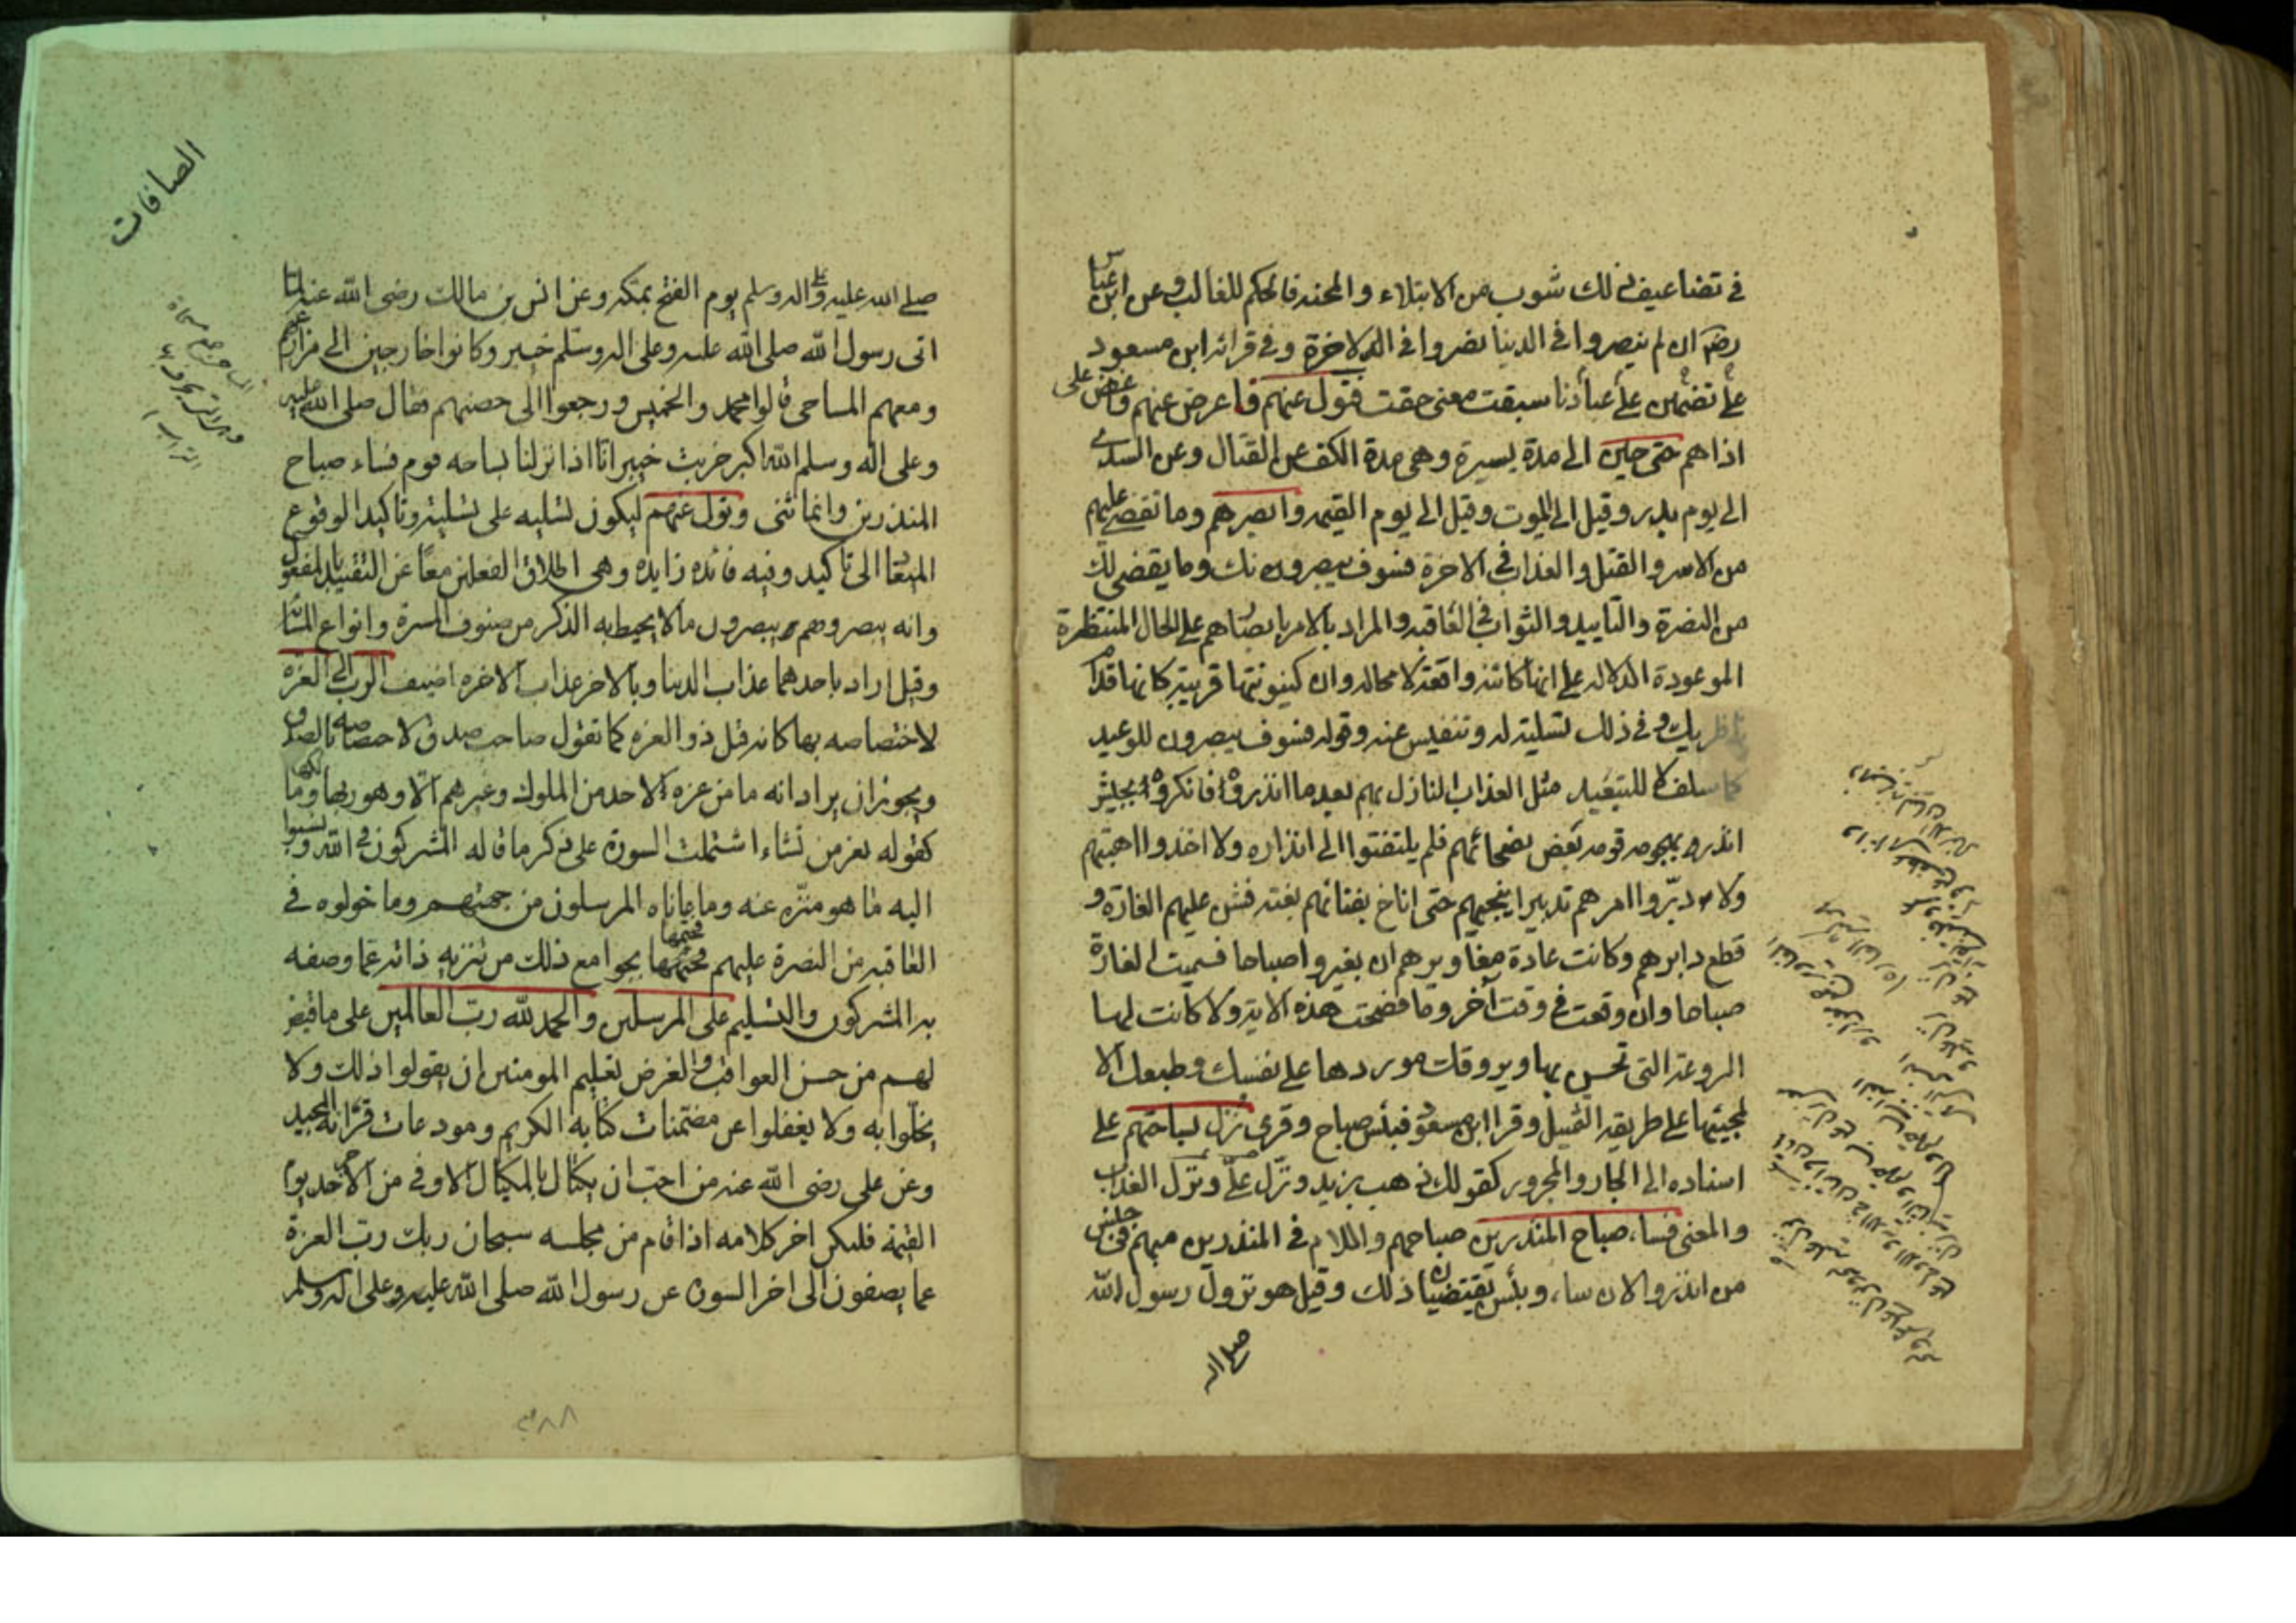 في تضاعيف ذلك شوب من الابتلاء والمحنه فالحكم للغالب وعن ابن عباس
رضه ان لم ينصروا في الدنيا نصروا في الاخرة وفي قرائه ابن مسعود
على عبادنا على تضمين سبقت معنى حقت فتول عنهم فاعرض عنهم واغض على
اذاهم حتى حين الى مدة يسيرة وهى مدة الكف عن القتال وعن السدي
الى يوم بدر وقيل الى الموت وقيل الى يوم القيمه وابصرهم وما تقضى عليهم
من الاسر والقتل والعذاب في الاخرة فسوف يبصرونك وما يقضى لك
من النصرة والتاييد والثواب في العاقبه والمراد بالامر بابصارهم على الحال المنتظرة
الموعودة الدلاله على انها كائنه واقعة لا محاله وان كينونتها قريبة كانها قدام
ناظريك وفي ذلك تسلية له وتنفيس عنه وقوله فسوف يبصرون للوعيد
كما سلف لا للتبعيد مثل العذاب النازل بهم بعد ما انذروه فانكروه بجيش
انذر بهجومه قومه بعض نصحائهم فلم يلتفتوا الى انذاره ولا اخذوا اهبتهم
ولا دبروا امرهم تدبيرا ينجيهم حتى اناخ بفنائهم بغته فشن عليهم الغارة و
قطع دابرهم وكانت عادة مغاويرهم ان يغيروا صباحا فسميت الغارة
صباحا وان وقعت في وقت آخر وما فصحت هذه الاية ولا كانت لها
الروعة التى تحس بها ويروقك موردها على نفسك وطبعك الا
لمجيئها على طريقه التمثيل وقرا ابن مسعود فبئس صباح وقرى نزل بساحتهم على
اسناده الى الجار والمجرور كقولك ذهب بزيد ونزل على ونزل العذاب
والمعنى فساء صباح المنذرين صباحهم واللام في المنذرين مبهم في جنس
من انذروا لان ساء وبئس يقتضيان ذلك وقيل هو نزول رسول الله
صلى الله
الصافات
صلى الله عليه وعلى اله وسلم يوم الفتح بمكه وعن انس بن مالك رضى الله عنه لما
اتى رسول الله صلى الله عليه وعلى اله وسلم خيبر وكانوا خارجين الى مزارعهم
ومعهم المساحى قالوا محمد والخميس ورجعوا الى حصنهم فقال صلى الله عليه
وعلى اله وسلم الله اكبر خربت خيبر انا اذا نزلنا بساحه قوم فساء صباح
المنذرين وانما ثنى وتول عنهم ليكون تسليه على تسلية وتاكيدا لوقوع
الميعاد الى تاكيد وفيه فائده زايده وهى اطلاق الفعلين معا عن التقييد بالمفعول
وانه يبصر وهم يبصرون ما لا يحيط به الذكر من صنوف المسرة وانواع المساءة
وقيل اراد باحدهما عذاب الدنيا وبالاخر عذاب الاخره اضيف الرب الى العزه
لاختصاصه بها كانه قيل ذو العزه كما تقول صاحب صدق لاختصاصه بالصدق
ويجوز ان يراد انه ما من عزه لاحد من الملوك وغيرهم الا وهو ربها ومالكها
كقوله تعز من تشاء اشتملت السورة على ذكر ما قاله المشركون في الله ونسبوا
اليه ما هو منزه عنه وما عاناه المرسلون من جهتهم وما خولوه في
العاقبه من النصرة عليهم فختمها بجوامع ذلك من تنزيه ذاته عما وصفه
به المشركون والتسليم على المرسلين والحمد لله رب العالمين على ما قيض
لهم من حسن العواقب والغرض تعليم المومنين ان يقولوا ذلك ولا
يخلوا به ولا يغفلوا عن مضمنات كتابه الكريم ومودعات قرانه المجيد
وعن على رضى الله عنه من احب ان يكتال بالمكيال الاوفى من الاجر يوم
القيمة فليكن اخر كلامه اذا قام من مجلسه سبحان ربك رب العزة
عما يصفون الى اخر السورة عن رسول الله صلى الله عليه وعلى اله وسلم